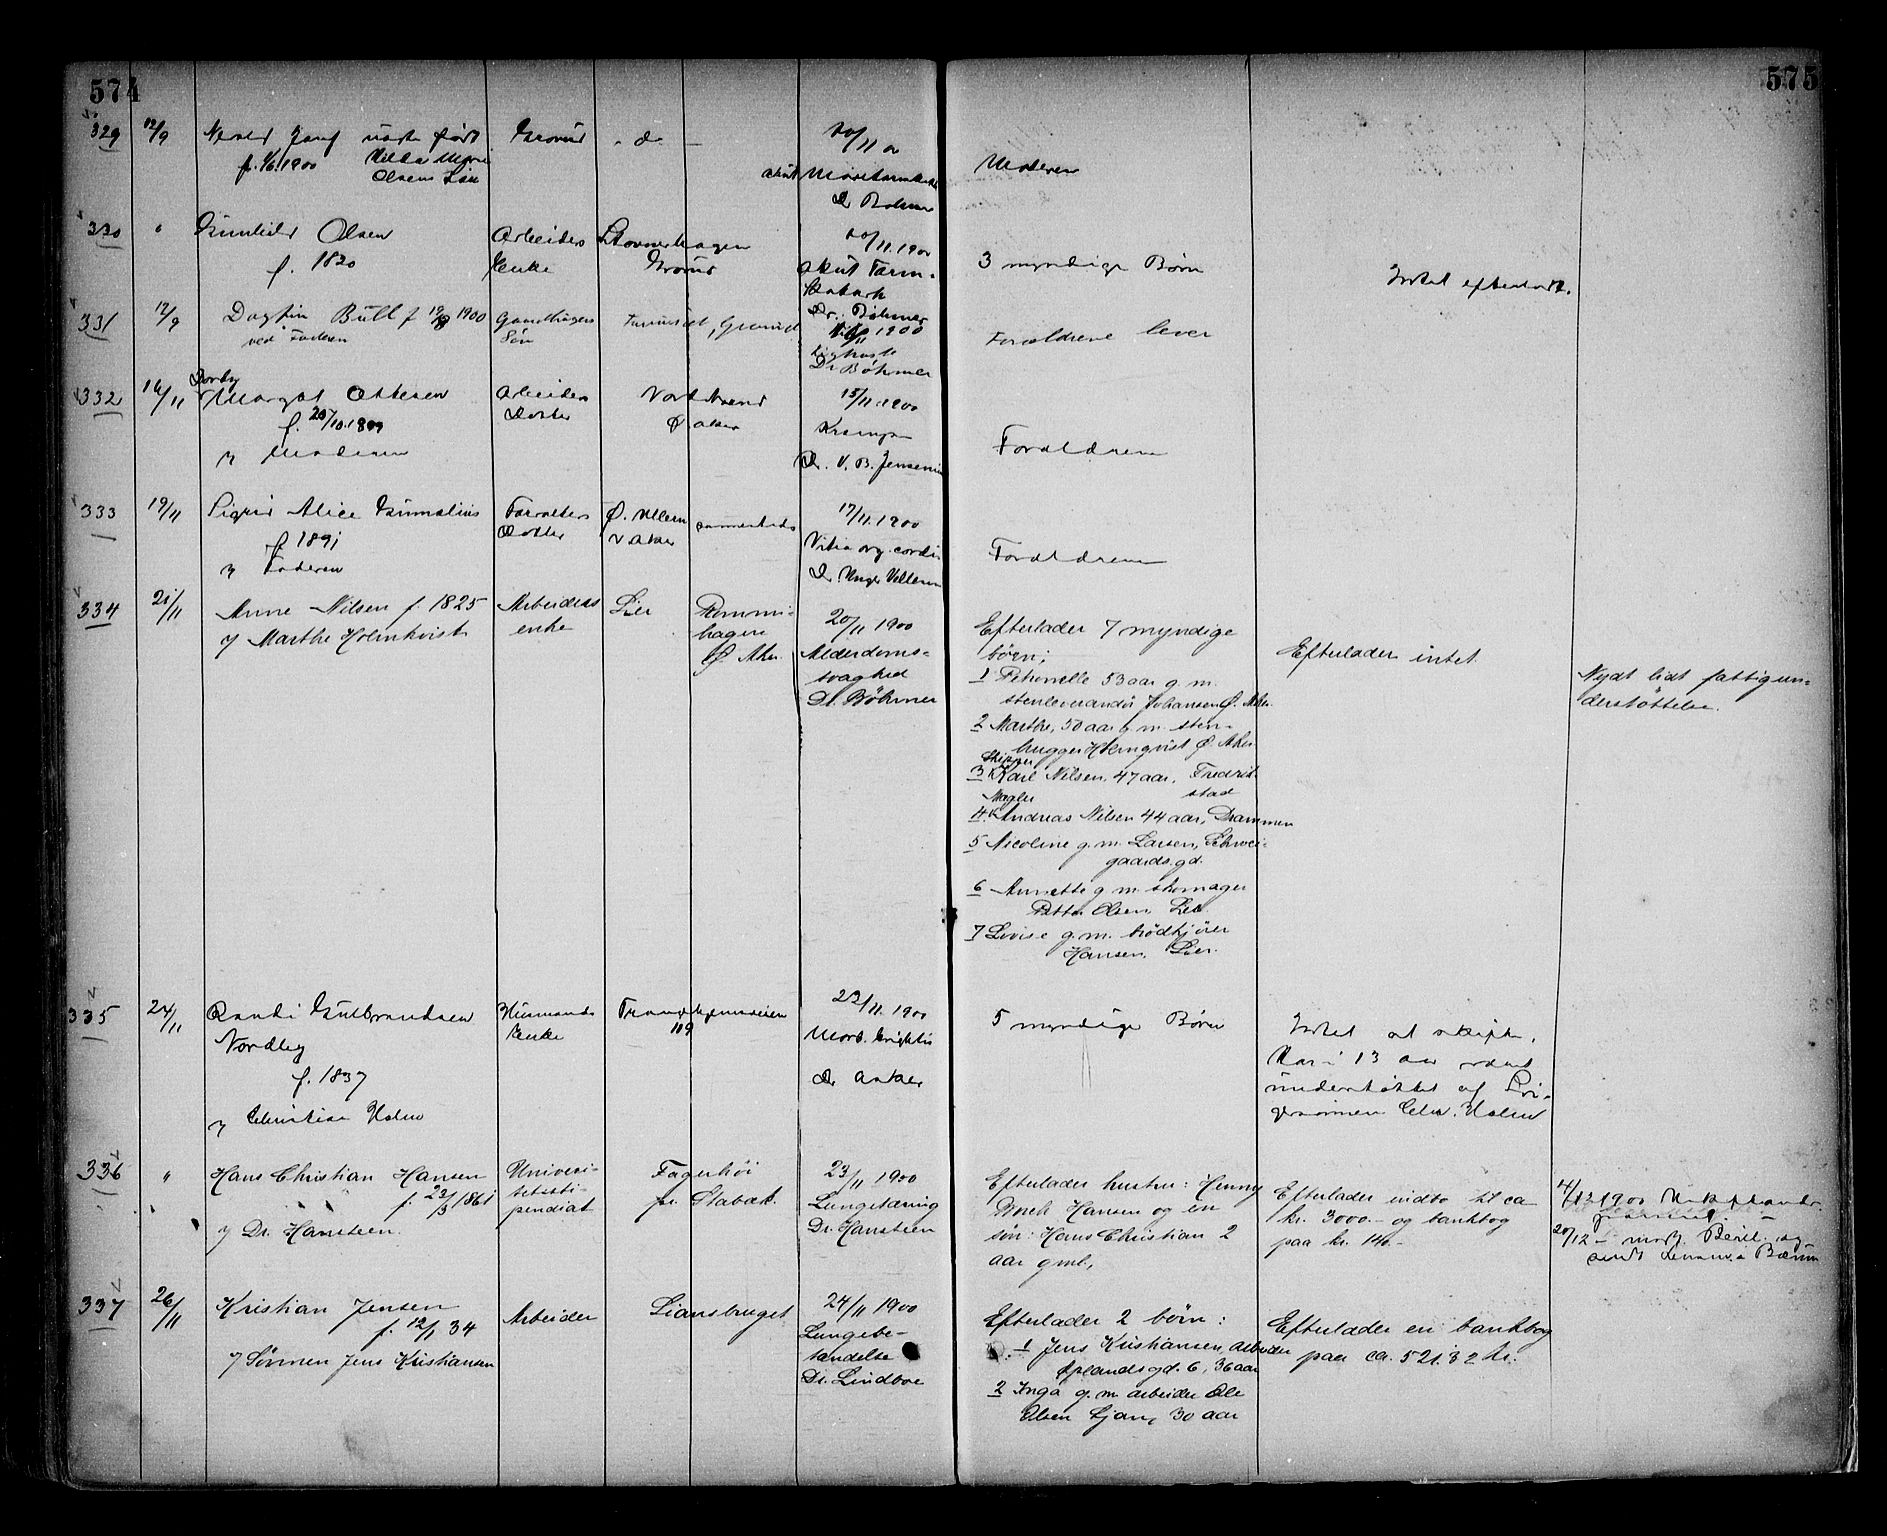 574
575
329
12/9
født
f. 1/6.1900
Olsens Søn
Grorud
20/11 00
akut
Dr Bøhmer
Moderen
330
"
Gunhild Olsen
f. 1820
Arbeiders
Enke
Stovnerhagen
Grorud
20/11.1900
akut Tarm-
katarh
Dr. Bøhmer
3 myndige Børn
Intet efterladt.
331
12/9
Dagfin Bull f 1900
ved Faderen
Gaardbrugers
Søn
Furuset, Grorud
1900
Kighoste
Dr Bøhmer
Forældrene lever
332
16/11
Margot Ottesen
f. 20/10.1899
v Moderen
Arbeiders
Datter
Nordstrand
Ø. Aker
15/11.1900
Krampe
Dr. V. B. Jensenius
Forældrene
333
19/11
Sigrid Alice Gumælius
f. 1891
v Faderen
Forvalters
Datter
Ø. Ullern
V Aker
sammesteds
17/11.1900
Vitia org. cordis
Dr. Unger Vetlesen
Forældrene
334
21/11
Anne Nilsen f. 1825
v/ Marthe Holmkvist
Arbeiders
enke
Lier
Rommi-
hagen
Ø Aker.
20/11 1900
Alderdoms-
svaghed
Dr. Bøhmer
Efterlader 7 myndige
børn;
1 Petronelle 53 aar g. m.
stenleverandør Johansen Ø. Aker.
2 Marthe, 50 aar g. m. sten-
hugger Holmqvist Ø. Aker.
Skipper
3 Karl Nilsen, 47 aar, Fredrik-
stad
Mægler
4. Andreas Nilsen 44 aar, Drammen
5 Nicoline g. m. Larsen, Schwei-
gaards. gd.
6 Annette g m skomager
Petter Olsen Lier.
7 Lovise g. m. brødkjører
Hansen, Lier.
Efterlader intet
Nydt lidt fattigun-
derstøttelse.
335
24/11
Randi Gulbrandsen
Nordby
f. 1837
v Christian Holm
Husmands
Enke
Trondhjemsveien
119
23/11.1900
Morb. brightii
Dr Anker
5 myndige Børn
Intet at skifte.
Har i 13 aar været
understøttet af Svi-
gersønnen Chr. Holm
336
"
Hans Christian Hansen
f. 23/3 1861
v/ Dr. Hansteen.
Universi-
tetssti-
pendiat
Fagerhøi
pr. Stabæk.
23/11 1900
Lungetæring
Dr. Hansteen
Efterlader hustru: Henny
Hansen og en
søn: Hans Christian 2
aar gml,
Efterlader indbo til ca
kr. 3000.- og bankbog
paa kr. 140.-
4/12 1900
20/12 - Bærum
337
26/11
Kristian Jensen
f. 12/1 34
v/ Sønnen Jens Kristiansen
Arbeider
Liansbruget
24/11 1900
Lungebe-
tændelse
Dr. Lindboe
Efterlader 2 børn:
1 Jens Kristiansen, arbeider
Oplandsgd. 6, 36 aar
2 Inga g. m arbeider Ole
Olsen Ljan, 30 aar
Efterlader en bankbog
paa ca. 521.82 kr.